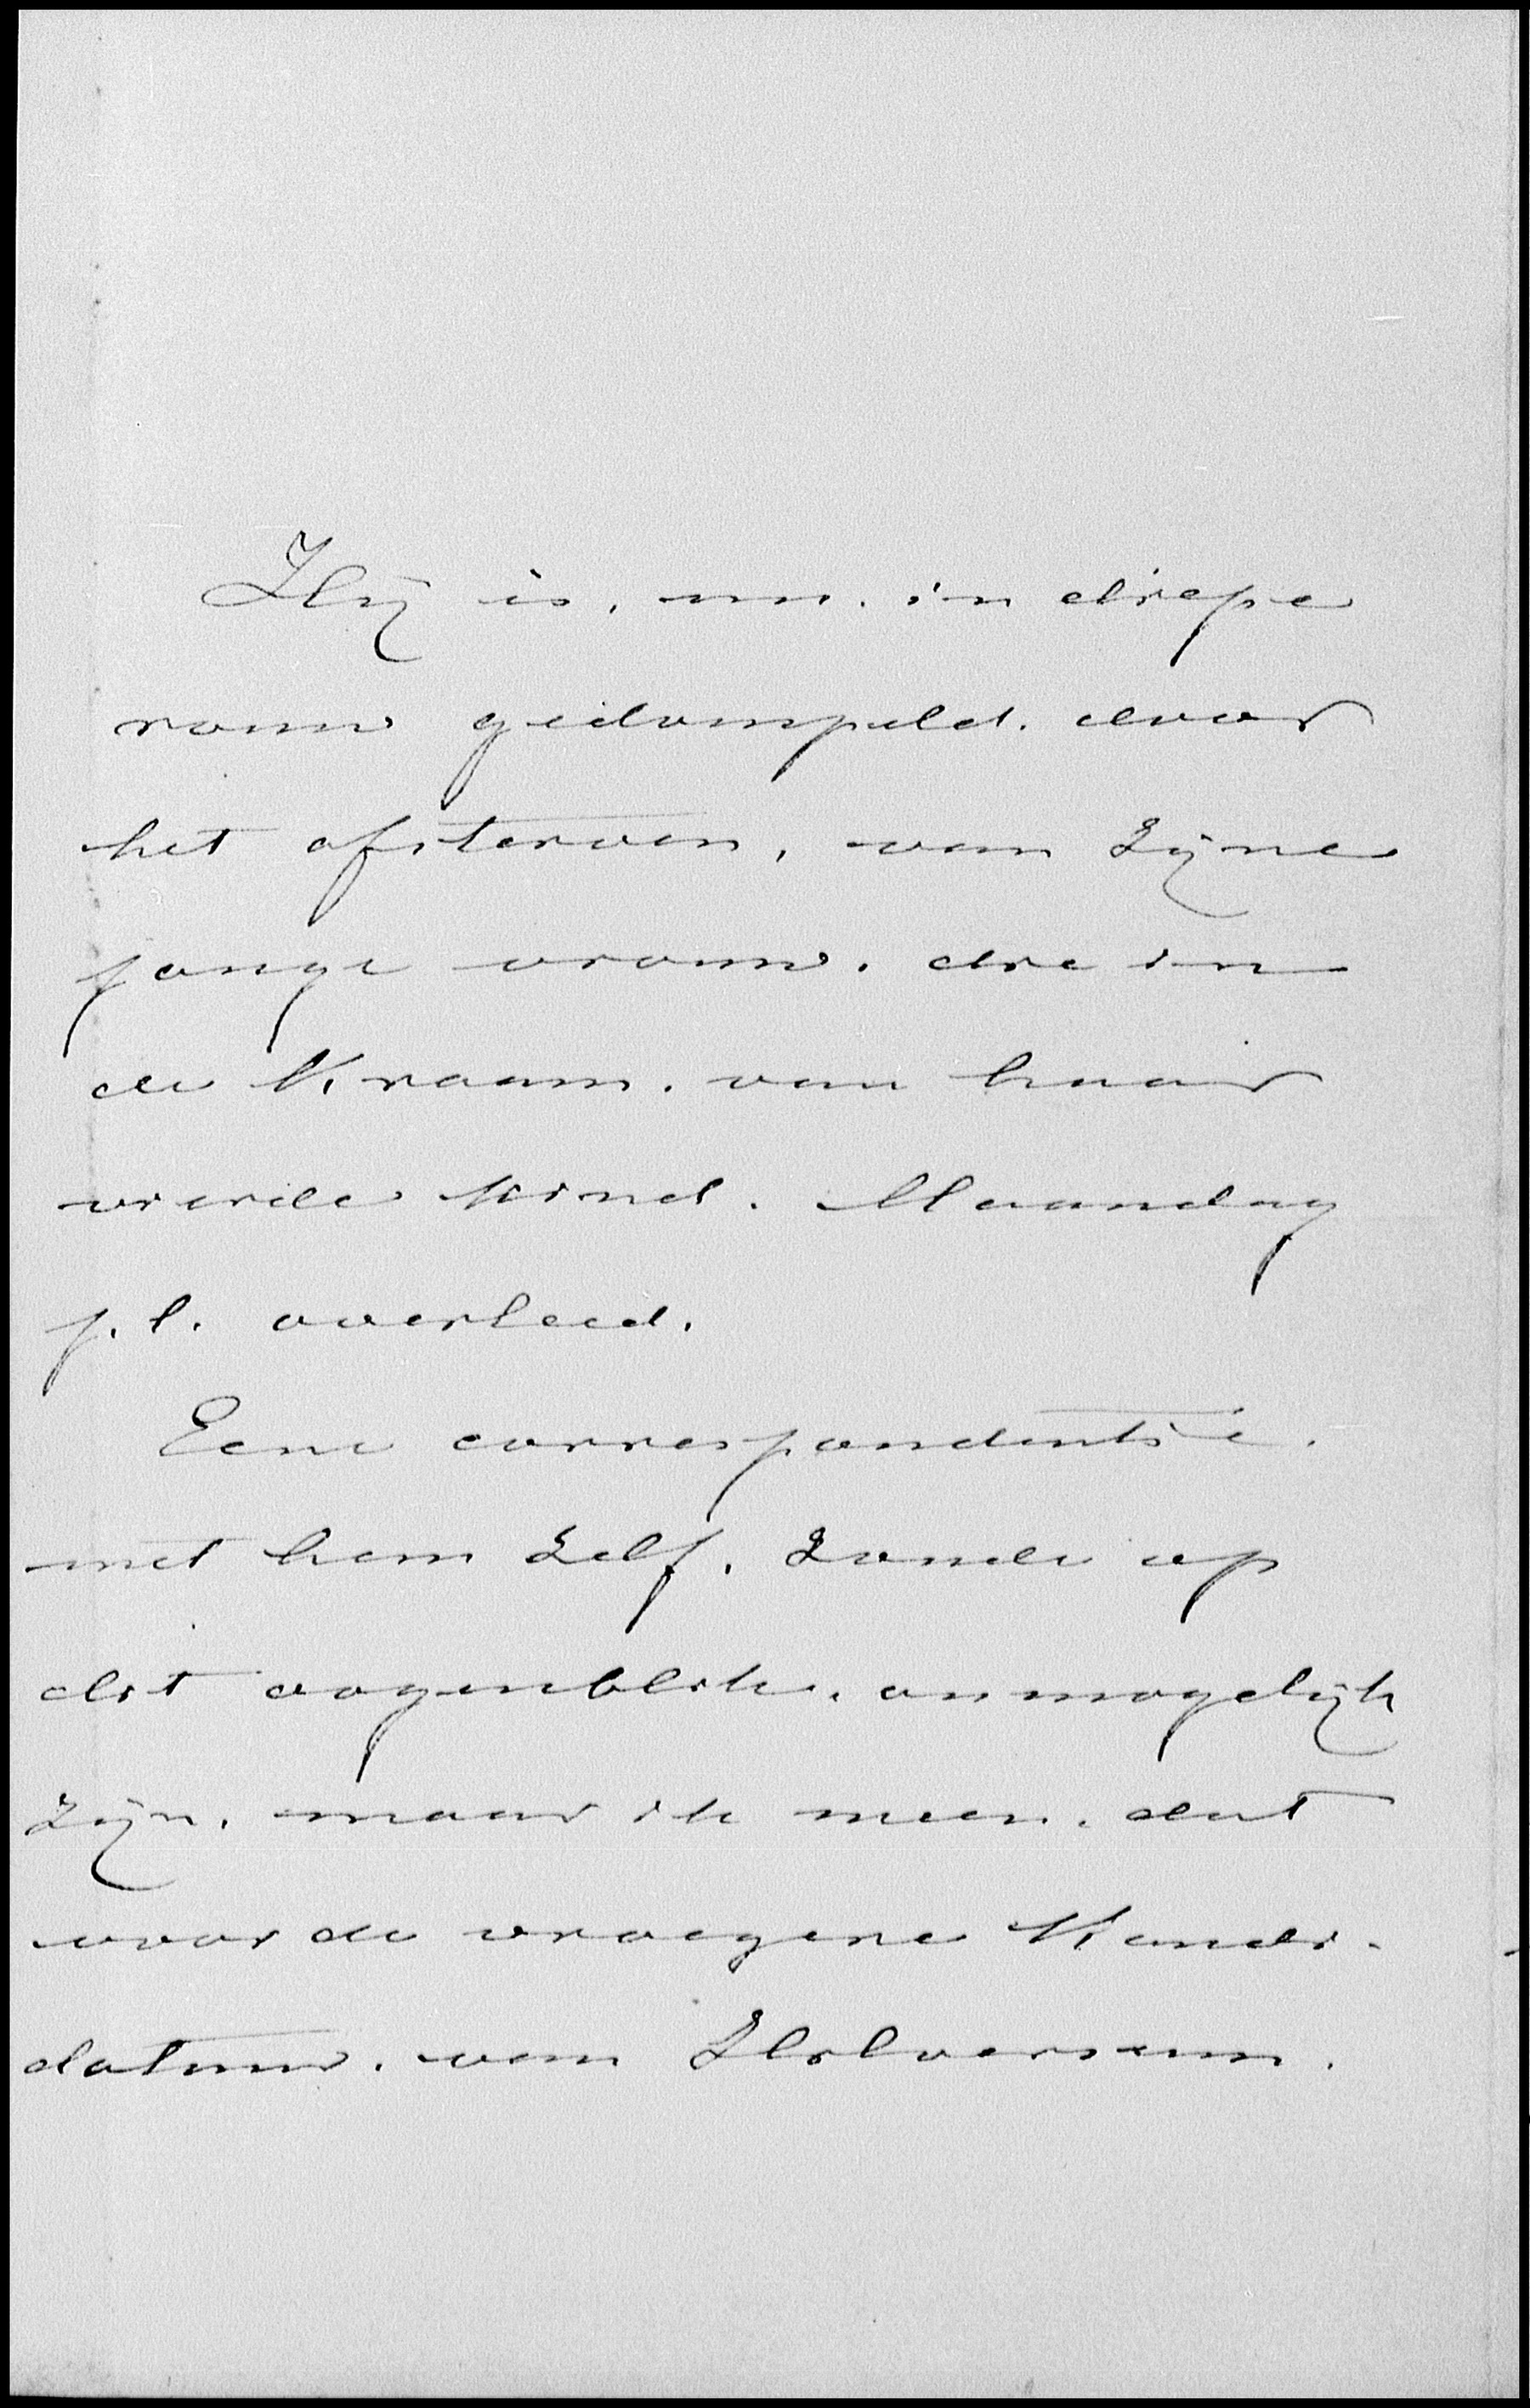 Hij is, nu. in diepe
rouw gedompeld. door
het afsterven, van Zijne
jonge vrouw. die in
de Kraam. van haar
vierde kind. Maandag
j.l. overleed.
Eene correspondentie.
met hem Zelf. Zoude op
dit oogenblik. onmogelijk
Zijn, maar ik meen. dat
voor de vroegere Kandi-
datuur. van Hilversum.